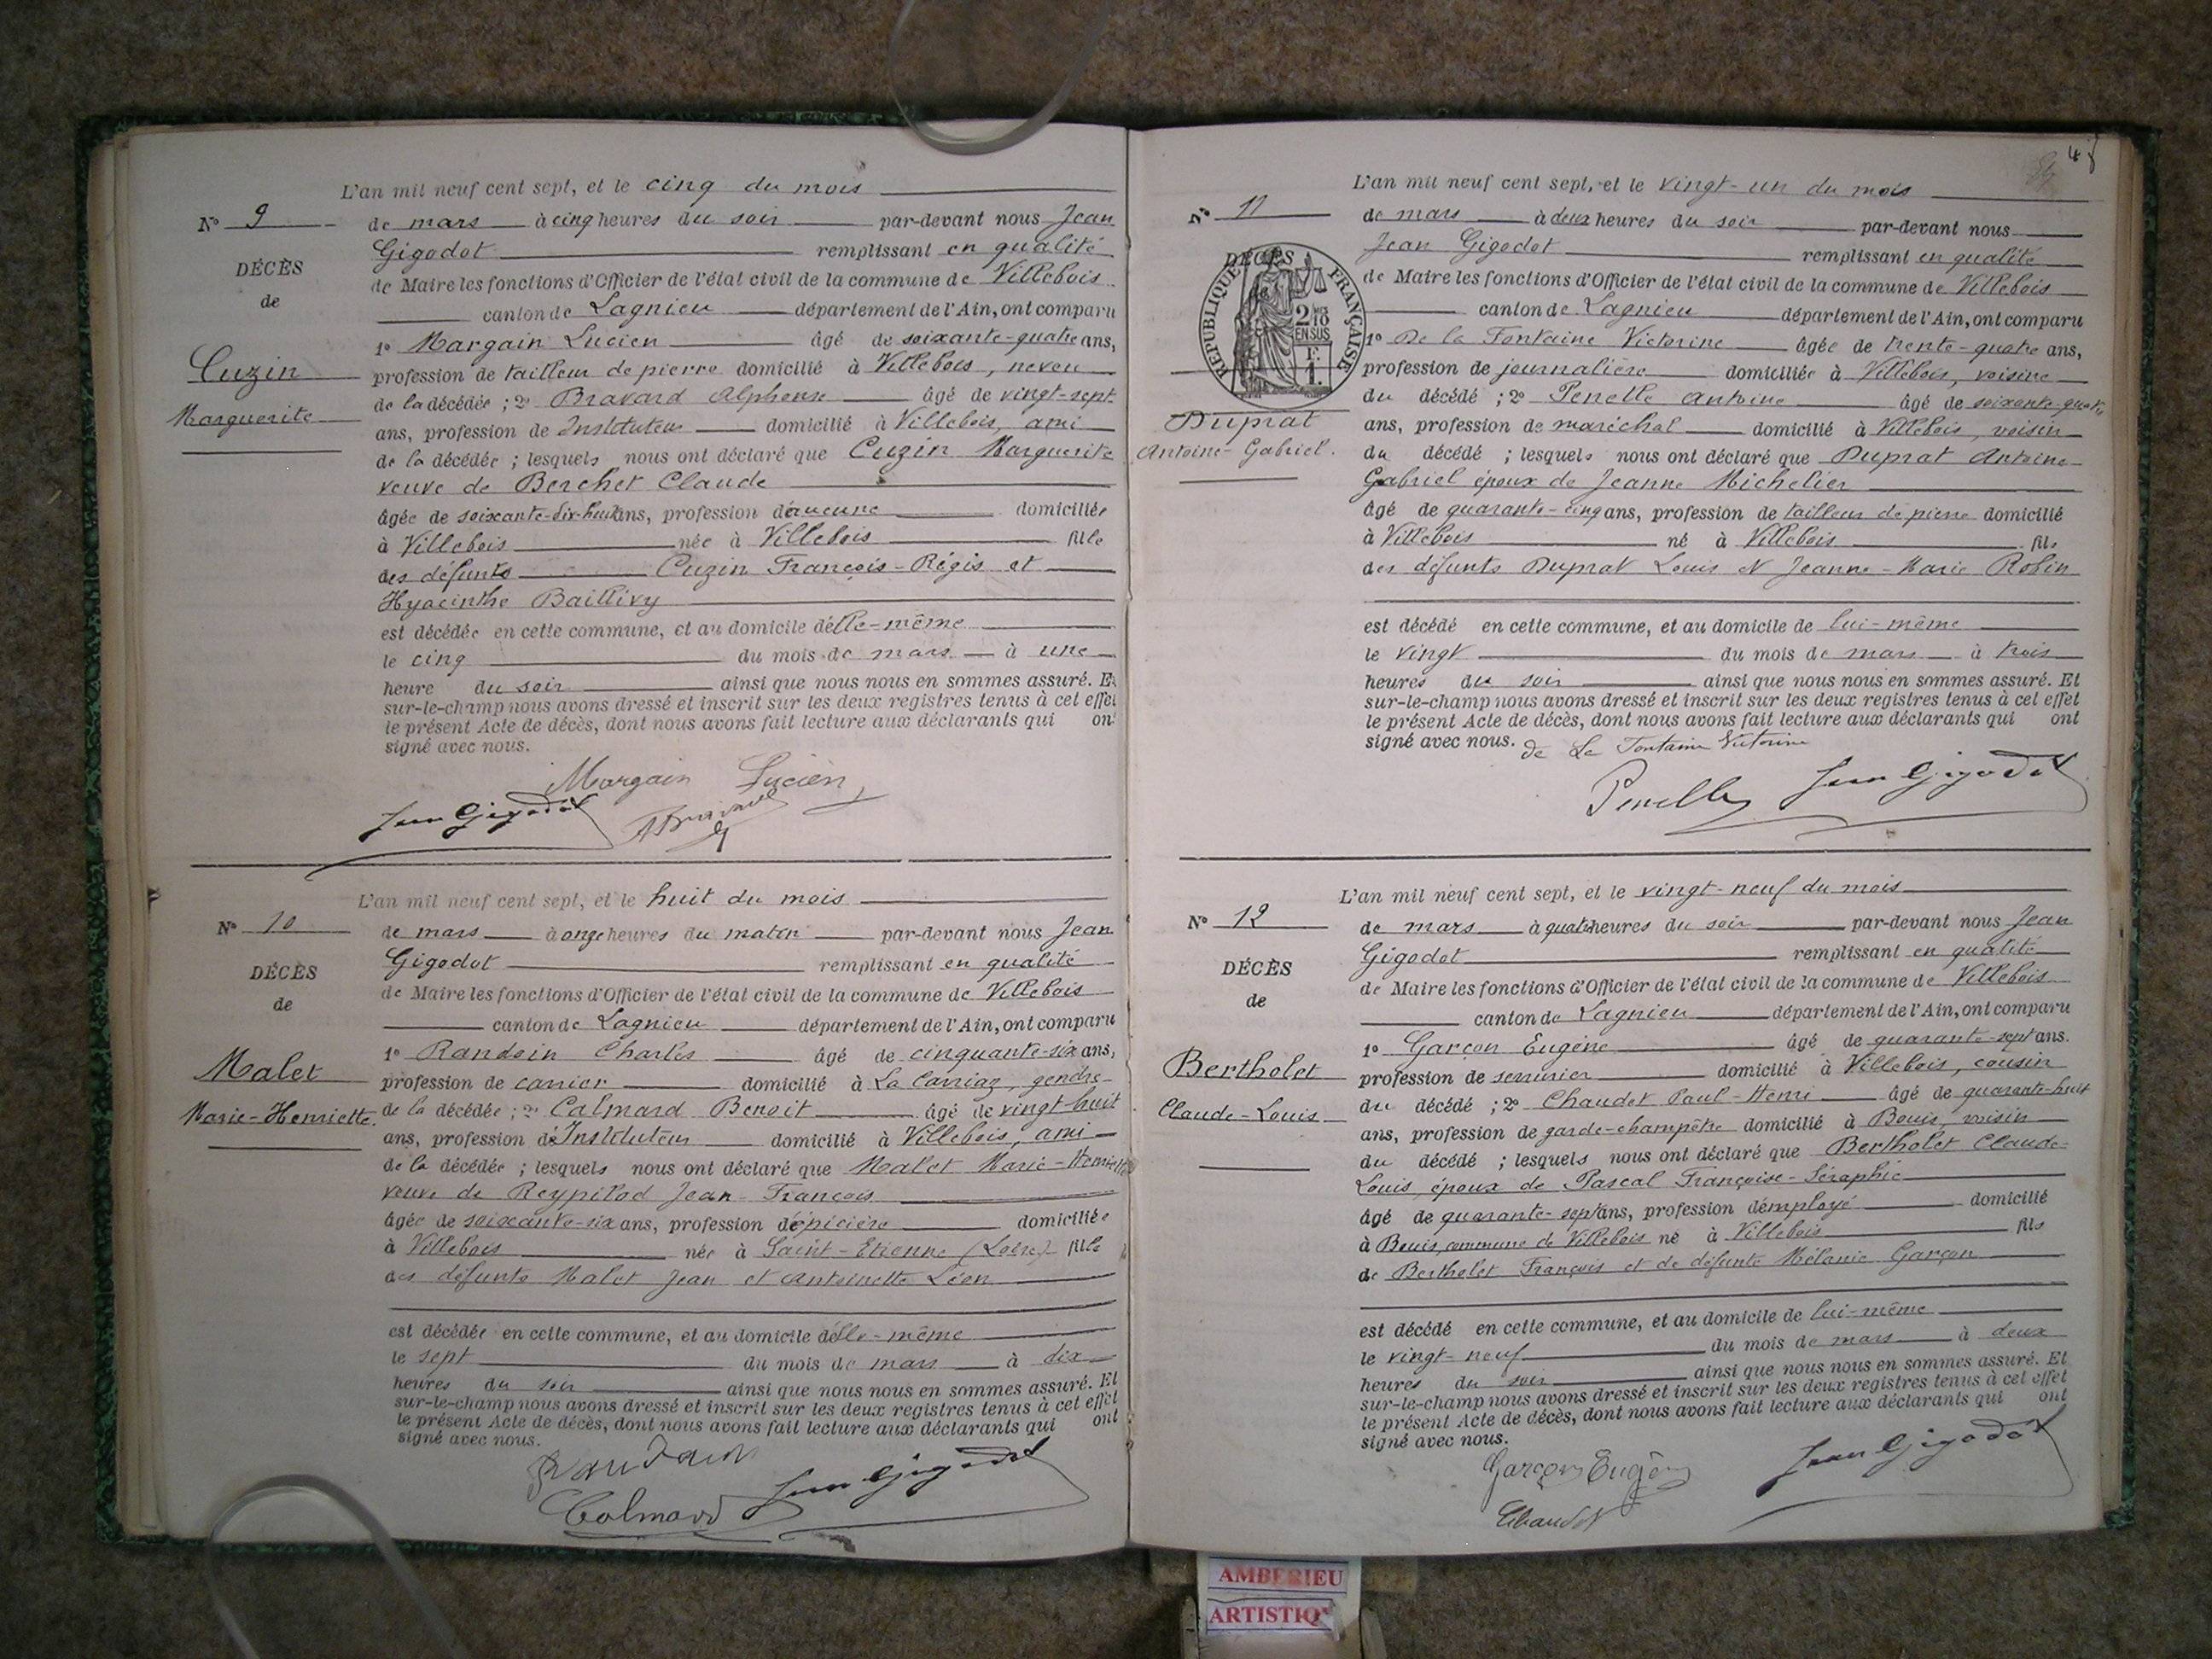 L'an mil neuf cent sept, et le cinq du mois
N° 9
de mars à cinq heures du soir par-devant nous Jean
Gigodot remplissant en qualité
DÉCÈS
de
de Maire les fonctions d'Officier de l'état civil de la commune de Villebois
canton de Lagnieu département de l'Ain, ont comparu
1° Margain Lucien âgé de soixante-quatre ans,
Cuzin
Marguerite
profession de tailleur de pierre domicilié à Villebois, neveu
de la décédée ; 2° Bravard Alphonse âgé de vingt-sept
ans, profession de Instituteur domicilié à Villebois, ami
de la décédée ; lesquels nous ont déclaré que Cuzin Marguerite
veuve de Berchet Claude
âgée de soixante-dix-huit ans, profession d'aucune domiciliée
à Villebois née à Villebois fille
des défunts Cuzin François-Régis et
Hyacinthe Baillivy
est décédée en cette commune, et au domicile d'elle-même
le cinq du mois de mars à une
heure du soir ainsi que nous nous en sommes assuré. Et
sur-le-champ nous avons dressé et inscrit sur les deux registres tenus à cet effet
le présent Acte de décès, dont nous avons fait lecture aux déclarants qui ont
signé avec nous.
Margain Lucien
Jean Gigodot
L'an mil neuf cent sept, et le huit du mois
N° 10
de mars à onze heures du matin par-devant nous Jean
Gigodot remplissant en qualité
DÉCÈS
de
de Maire les fonctions d'Officier de l'état civil de la commune de Villebois
canton de Lagnieu département de l'Ain, ont comparu
1° Randoin Charles âgé de cinquante-six ans,
Malet
Marie-Henriette.
profession de carrier domicilié à La Carriaz, gendre
de la décédée ; 2° Calmard Benoit âgé de vingt-huit
ans, profession d'Instituteur domicilié à Villebois, ami
de la décédée ; lesquels nous ont déclaré que Malet Marie-Henriette
veuve de Reypilod Jean-François
âgée de soixante-six ans, profession d'épicière domiciliée
à Villebois née à Saint-Etienne (Loire) fille
des défunts Malet Jean et Antoinette Léon
est décédée en cette commune, et au domicile d'elle-même
le sept du mois de mars à dix
heures du soir ainsi que nous nous en sommes assuré. Et
sur-le-champ nous avons dressé et inscrit sur les deux registres tenus à cet effet
le présent Acte de décès, dont nous avons fait lecture aux déclarants qui ont
signé avec nous.
Randoin
Calmard Jean Gigodot
48
L'an mil neuf cent sept, et le vingt-un du mois
N° 11
de mars à deux heures du soir par-devant nous
Jean Gigodot remplissant en qualité
DÉCÈS
RÉPUBLIQUE FRANÇAISE
2/10 EN SUS
F. 1.
de Maire les fonctions d'Officier de l'état civil de la commune de Villebois
canton de Lagnieu département de l'Ain, ont comparu
1° De la Fontaine Victorine âgée de trente-quatre ans,
profession de journalière domiciliée à Villebois, voisine
du décédé ; 2° Penelle Antoine âgé de soixante-quatre
Duprat
Antoine-Gabriel.
ans, profession de maréchal domicilié à Villebois, voisin
du décédé ; lesquels nous ont déclaré que Duprat Antoine-
Gabriel époux de Jeanne Michelier
âgé de quarante-cinq ans, profession de tailleur de pierre domicilié
à Villebois né à Villebois fils
des défunts Duprat Louis et Jeanne-Marie Robin
est décédé en cette commune, et au domicile de lui-même
le vingt du mois de mars à trois
heures du soir ainsi que nous nous en sommes assuré. Et
sur-le-champ nous avons dressé et inscrit sur les deux registres tenus à cet effet
le présent Acte de décès, dont nous avons fait lecture aux déclarants qui ont
signé avec nous. de La Fontaine Victorine
Penelle Jean Gigodot
L'an mil neuf cent sept, et le vingt-neuf du mois
N° 12
de mars à quatre heures du soir par-devant nous Jean
Gigodot remplissant en qualité
DÉCÈS
de
de Maire les fonctions d'Officier de l'état civil de la commune de Villebois
canton de Lagnieu département de l'Ain, ont comparu
1° Garçon Eugène âgé de quarante-sept ans.
Bertholet
Claude-Louis
profession de serrurier domicilié à Villebois, cousin
du décédé ; 2° Chaudet Paul-Henri âgé de quarante-huit
ans, profession de garde-champêtre domicilié à Bouis, voisin
du décédé ; lesquels nous ont déclaré que Bertholet Claude-
Louis, époux de Pascal Françoise-Séraphie
âgé de quarante-sept ans, profession d'employé domicilié
à Bouis, commune de Villebois né à Villebois fils
de Bertholet François et de défunte Mélanie Garçon
est décédé en cette commune, et au domicile de lui-même
le vingt-neuf du mois de mars à deux
heures du soir ainsi que nous nous en sommes assuré. Et
sur-le-champ nous avons dressé et inscrit sur les deux registres tenus à cet effet
le présent Acte de décès, dont nous avons fait lecture aux déclarants qui ont
signé avec nous.
Garçon Eugène Jean Gigodot
Chaudet
AMBERIEU
ARTISTIQ